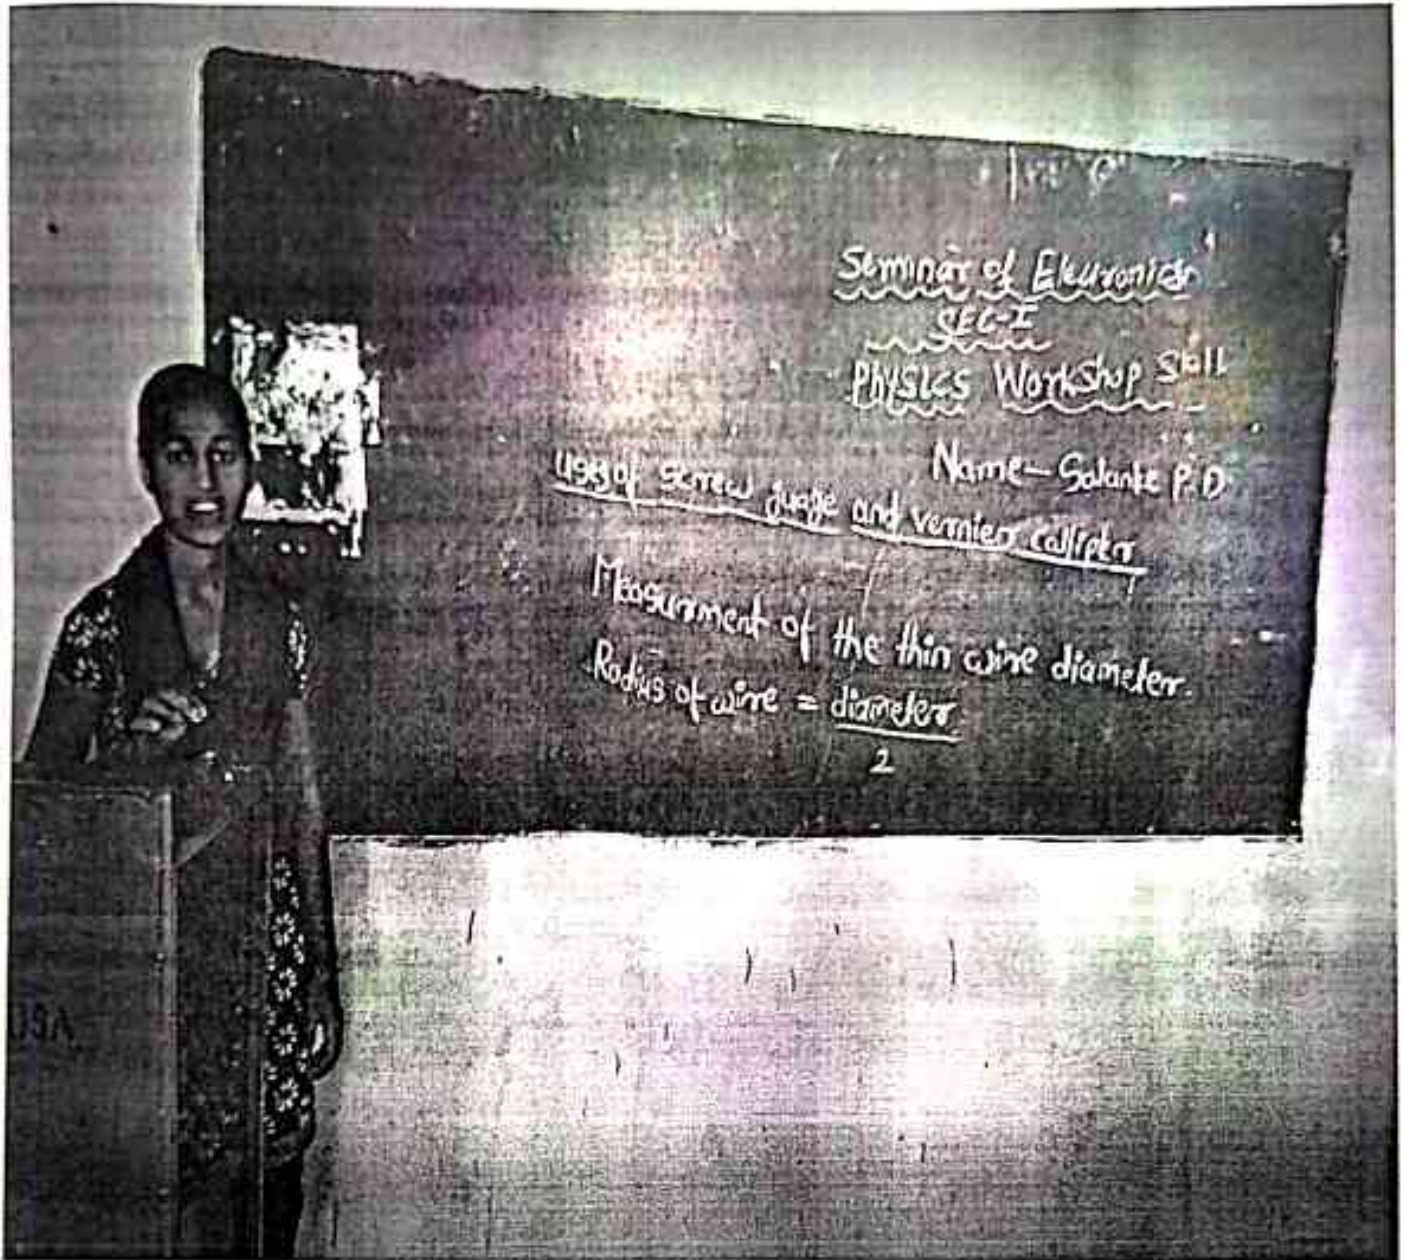 Seminar of Electronics
SEC-I
Physics Workshop Skill
Name - Salanke P.D
uses of screw guage and vernier calliper
Measurment of the thin wire diameter.
Radius of wire = diameter
2
USA